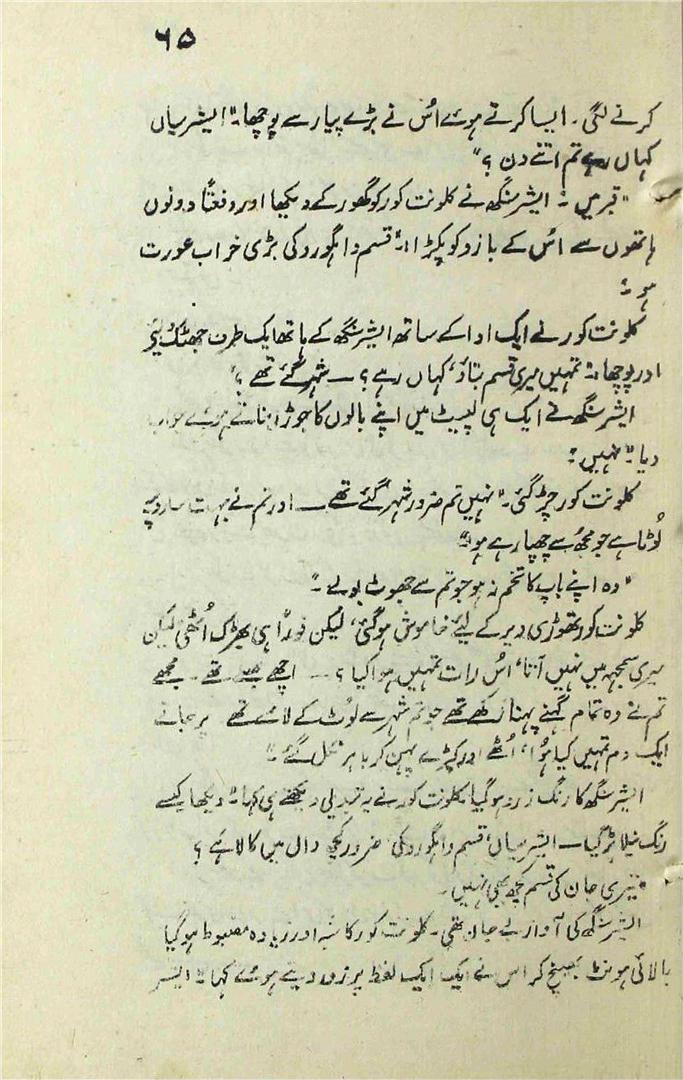 ۶۵
کرنے لگی۔ ایسا کرتے ہوئے اُس نے بڑے پیار سے پوچھا۔" ایشر سیاں
کہاں رہے تم اتنے دن ؟"
"قبر میں ۔" ایشر سنگھ نے کلونت کور کو گھور کے دیکھا اور دفعتًا دونوں
ہاتھوں سے اُس کے بازو کو پکڑا۔" قسم واہگورو کی بڑی خراب عورت
ہو۔"
کلونت کور نے ایک ادا کے ساتھ ایشر سنگھ کے ہاتھ ایک طرف جھٹک دیئے
اور پوچھا،" تمہیں میری قسم بتاؤ، کہاں رہے؟ — شہر گئے تھے ؟"
ایشر سنگھ نے ایک ہی لپیٹ میں اپنے بالوں کا جوڑا بناتے ہوئے جواب
دیا۔" نہیں۔"
کلونت کور چڑ گئی۔" نہیں تم ضرور شہر گئے تھے — اور تم نے بہت سا روپیہ
لُوٹا ہے جو مجھ سے چھپا رہے ہو۔"
"وہ اپنے باپ کا تخم نہ ہو جو تم سے جھوٹ بولے۔"
کلونت کور تھوڑی دیر کے لئے خاموش ہو گئی، لیکن فوراً ہی بھڑک اُٹھی لیکن
میری سمجھ میں نہیں آتا، اُس رات تمہیں ہوا کیا ؟ — اچھے بھلے تھے۔ مجھے
تم نے وہ تمام گہنے پہنا رکھے تھے جو تم شہر سے لوٹ کے لائے تھے پر جانے
ایک دم تمہیں کیا ہُوا، اُٹھے اور کپڑے پہن کر باہر نکل گئے۔"
ایشر سنگھ کا رنگ زرد ہو گیا، کلونت کور نے یہ تبدیلی دیکھتے ہی کہا۔" دیکھا کیسے
رنگ نیلا پڑ گیا — ایشر سیاں، قسم واہگورو کی، ضرور کچھ دال میں کالا ہے ؟
"تیری جان کی قسم کچھ بھی نہیں۔
ایشر سنگھ کی آواز بے جان تھی۔ کلونت کور کا شبہ اور زیادہ مضبوط ہو گیا
بالائی ہونٹ بھینچ کر اس نے ایک ایک لفظ پر زور دیتے ہوئے کہا۔" ایشر